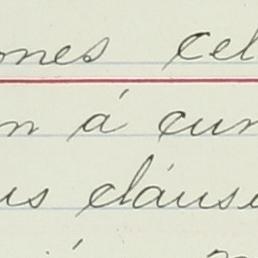 ones cel
n á cum
us cláusu